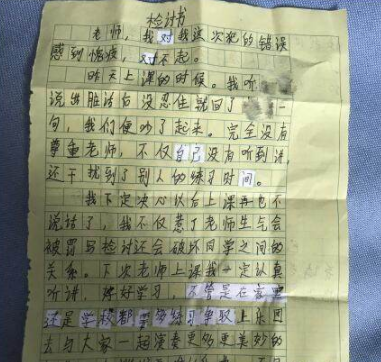 检讨书
老师，我对我这次犯的错误
感到惭疚，对不起。
昨天上课的时候。我听
说出脏话后没忍住就回了一
句，我们便吵了起来。完全没有
尊重老师，不仅自己没有听到讲
还干扰到了别人的练习时间。
我下定决心以后上课再也不
说话了，我不仅惹了老师生气会
被罚写检讨还会破坏同学之间的
关系。下次老师上课我一定认真
听讲，课好学习，不管是在家里
还是学校都要练习争取上乐团
去与大家一起演奏更多更美妙的